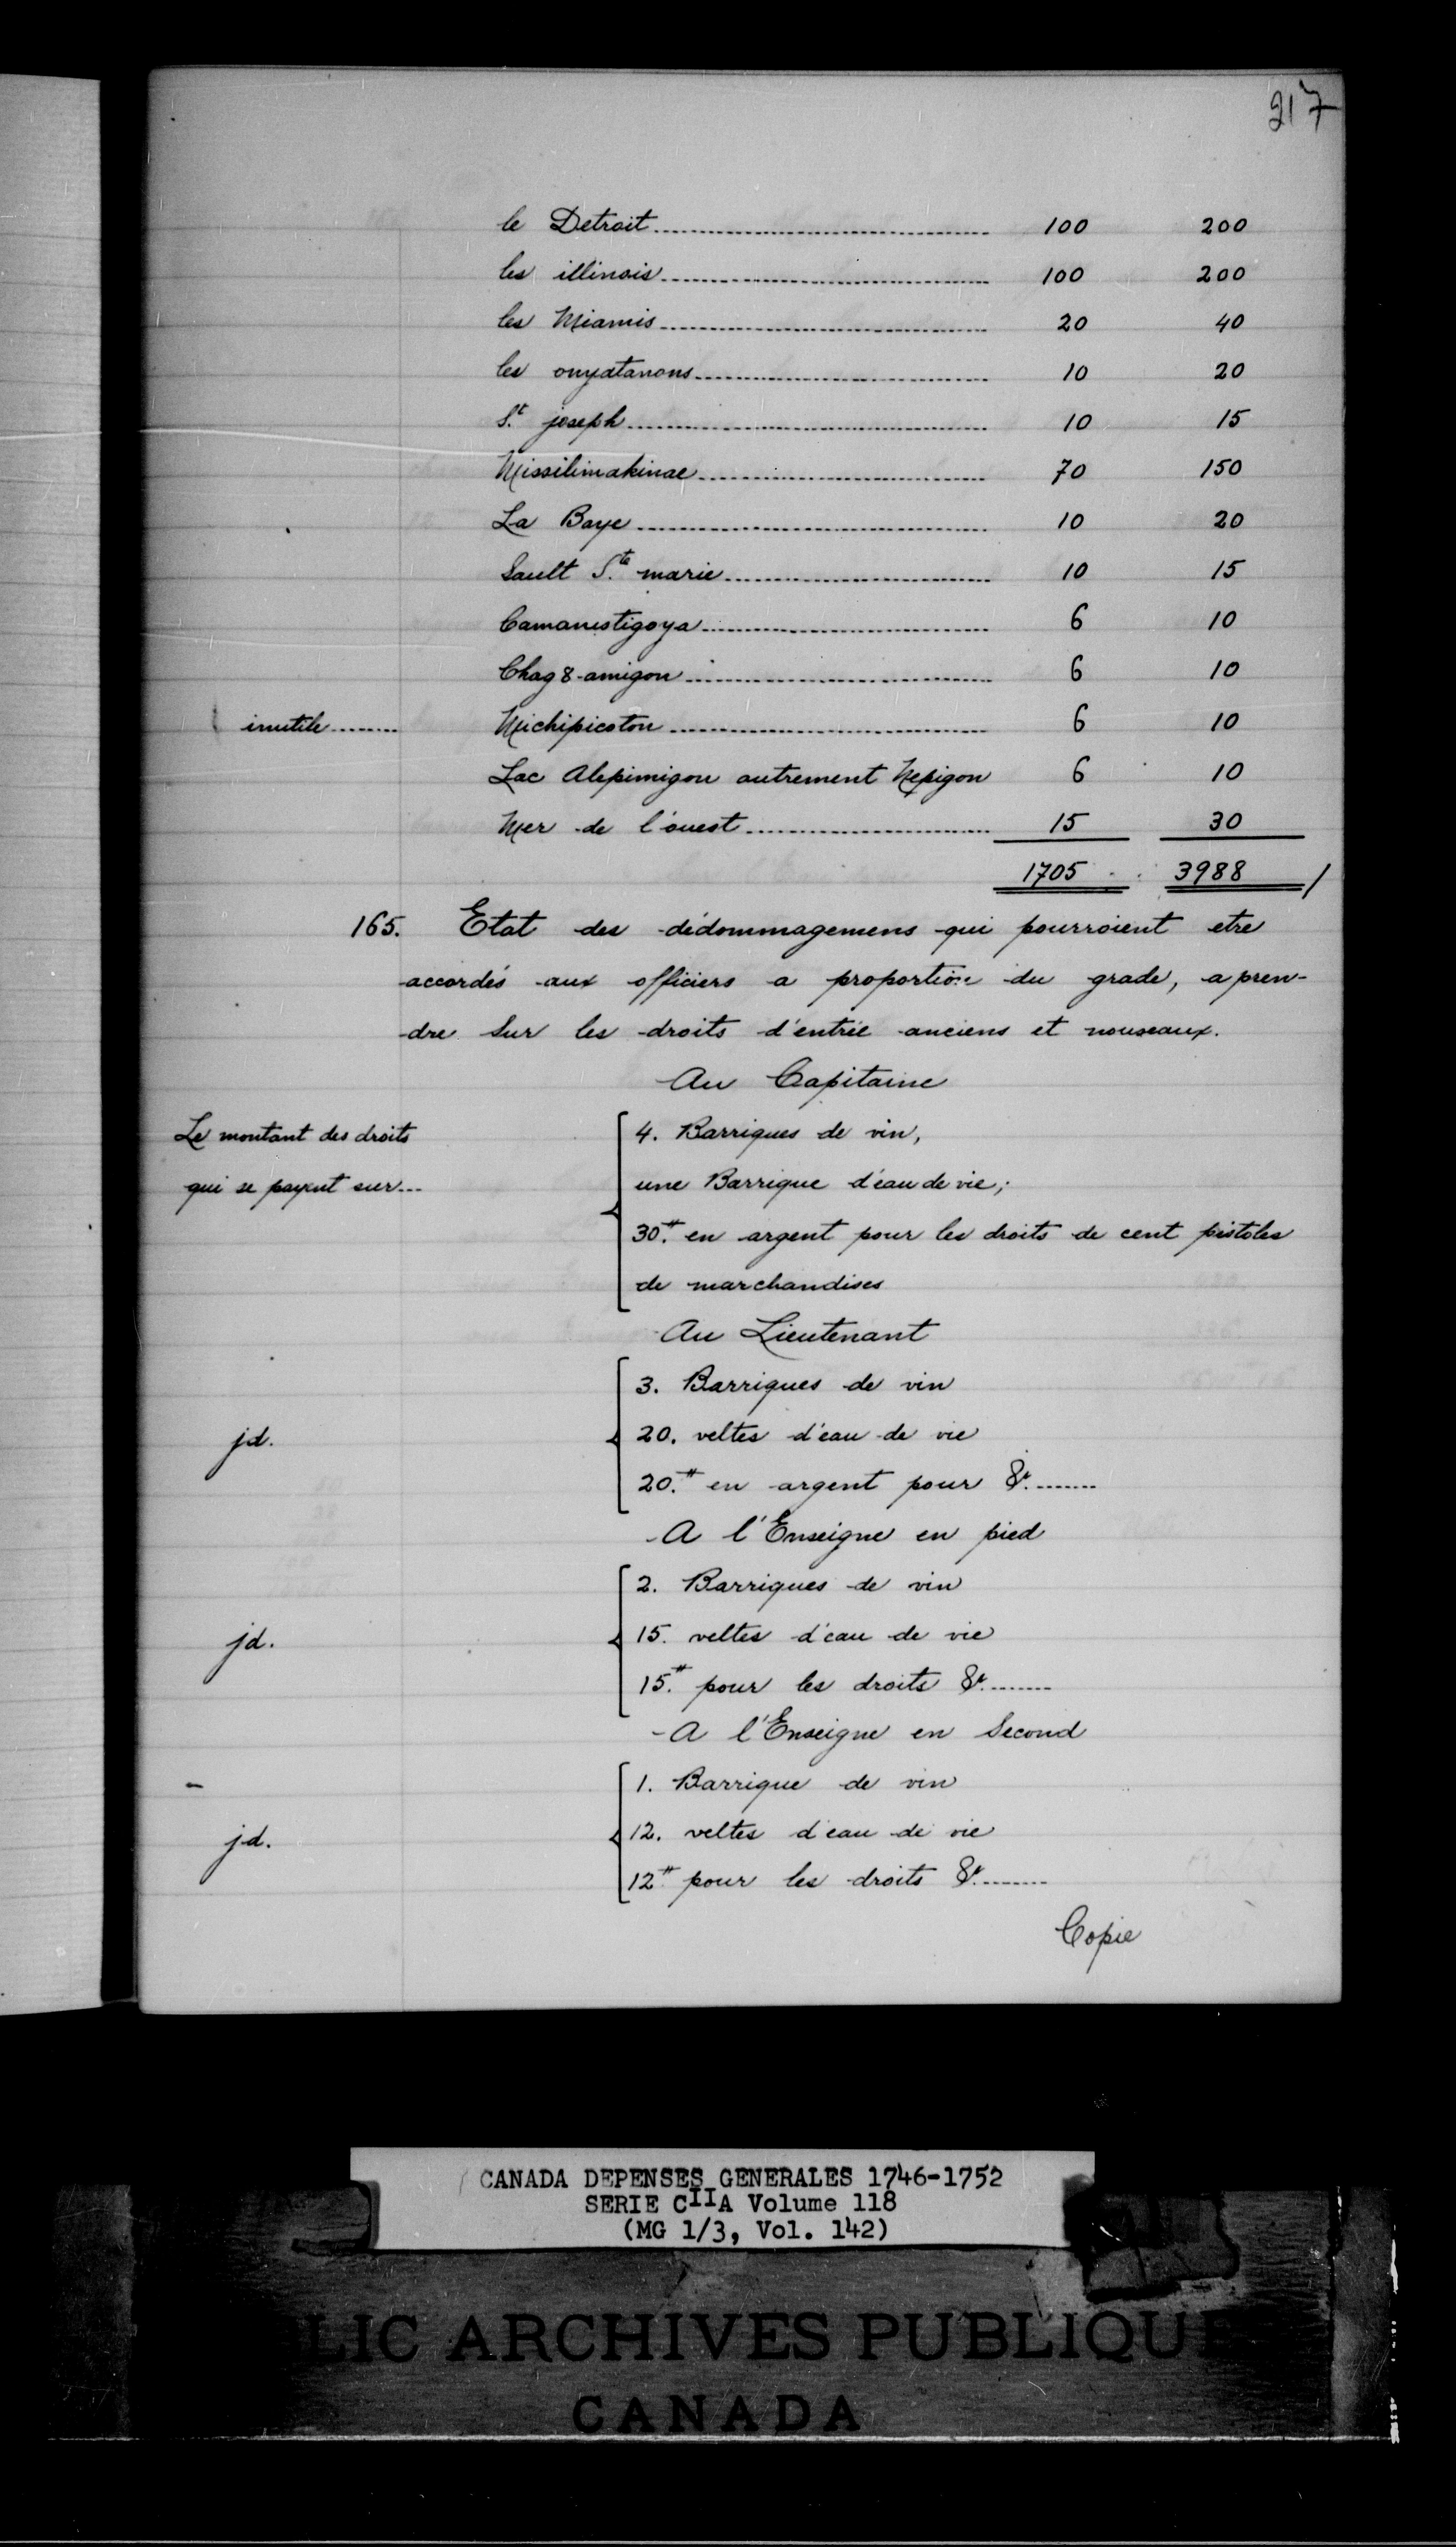 217
le Detroit 100 200
les illinois 100 200
les Miamis 20 40
les ouyatanons 10 20
St. joseph 10 15
Missilimakinac 70 150
La Baye 10 20
Sault Ste. marie 10 15
Camanestigoya 6 10
Chag8-amigon 6 10
inutile Michipicoton 6 10
Lac Alepimigon autrement Nepigon 6 10
Mer de l'ouest 15 30
1705 3988
165. Etat des dédommagemens qui pourroient etre
accordés aux officiers a proportion du grade, a pren-
dre Sur les droits d'entrée anciens et nouveaux.
Au Capitaine
Le montant des droits
qui se payent sur...
4. Barriques de vin,
une Barrique d'eau de vie;
30.# en argent pour les droits de cent pistoles
de marchandises
Au Lieutenant
3. Barriques de vin
jd. 20. veltes d'eau de vie
20.# en argent pour &.
A l'Enseigne en pied
2. Barriques de vin
jd. 15. veltes d'eau de vie
15.# pour les droits &.
A l'Enseigne en Second
1. Barrique de vin
jd. 12. veltes d'eau de vie
12# pour les droits &.
Copie
CANADA DEPENSES GENERALES 1746-1752
SERIE CIIA Volume 118
(MG 1/3, Vol. 142)
LIC ARCHIVES PUBLIQU
CANADA